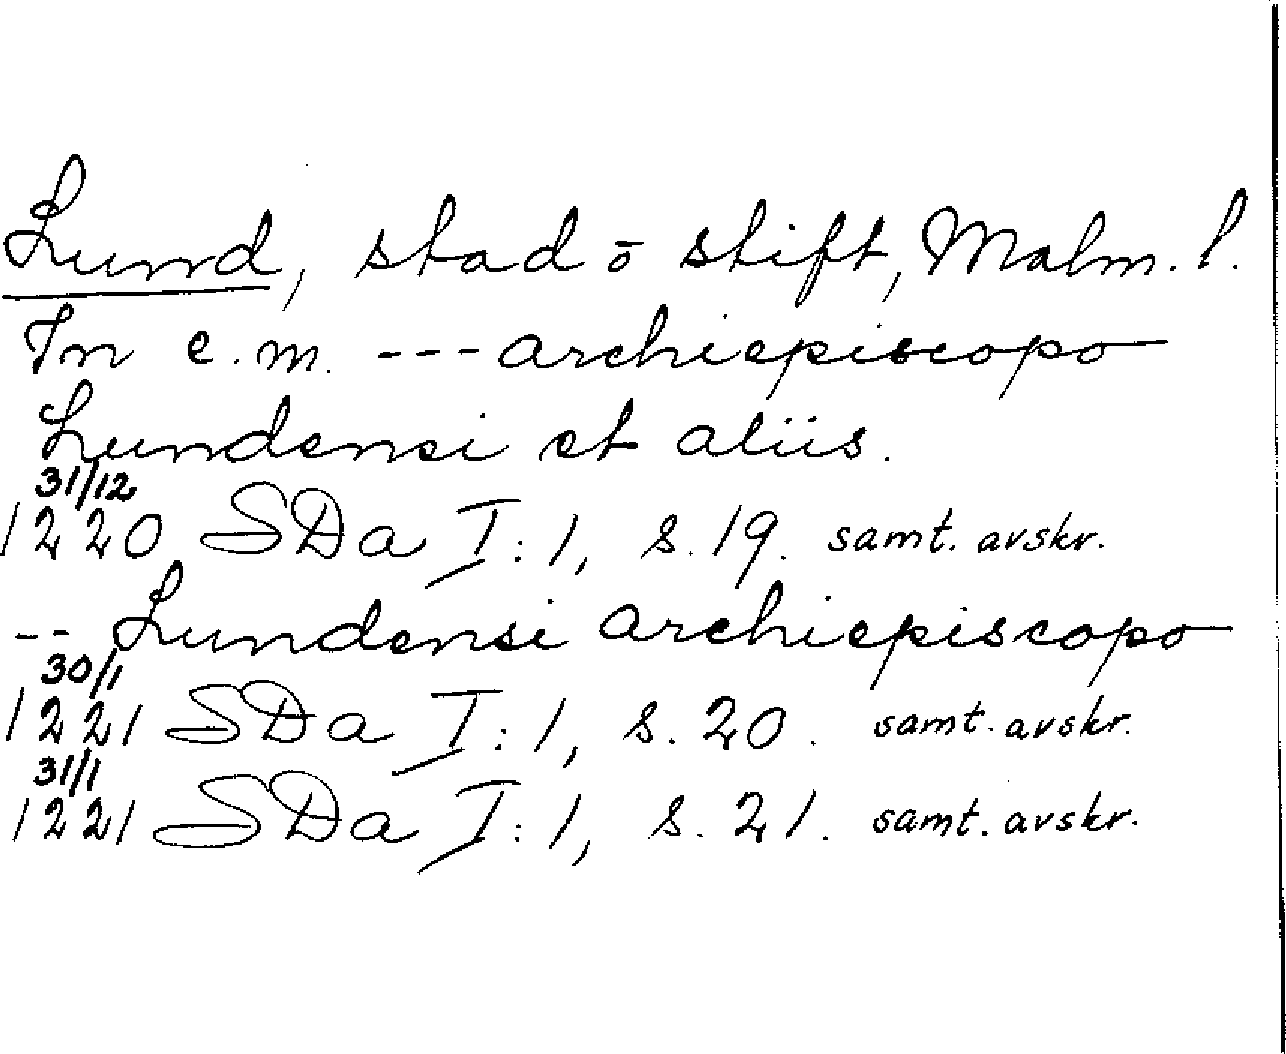 Lund, stad ō stift, Malm. l.
In e.m. --- archiepiscopo
Lundensi et aliis.
31/12
1220 SDa I:1, s. 19. samt. avskr.
-- Lundensi archiepiscopo
30/1
1221 SDa I:1, s. 20. samt. avskr.
31/1
1221 SDa I:1, s. 21. samt. avskr.